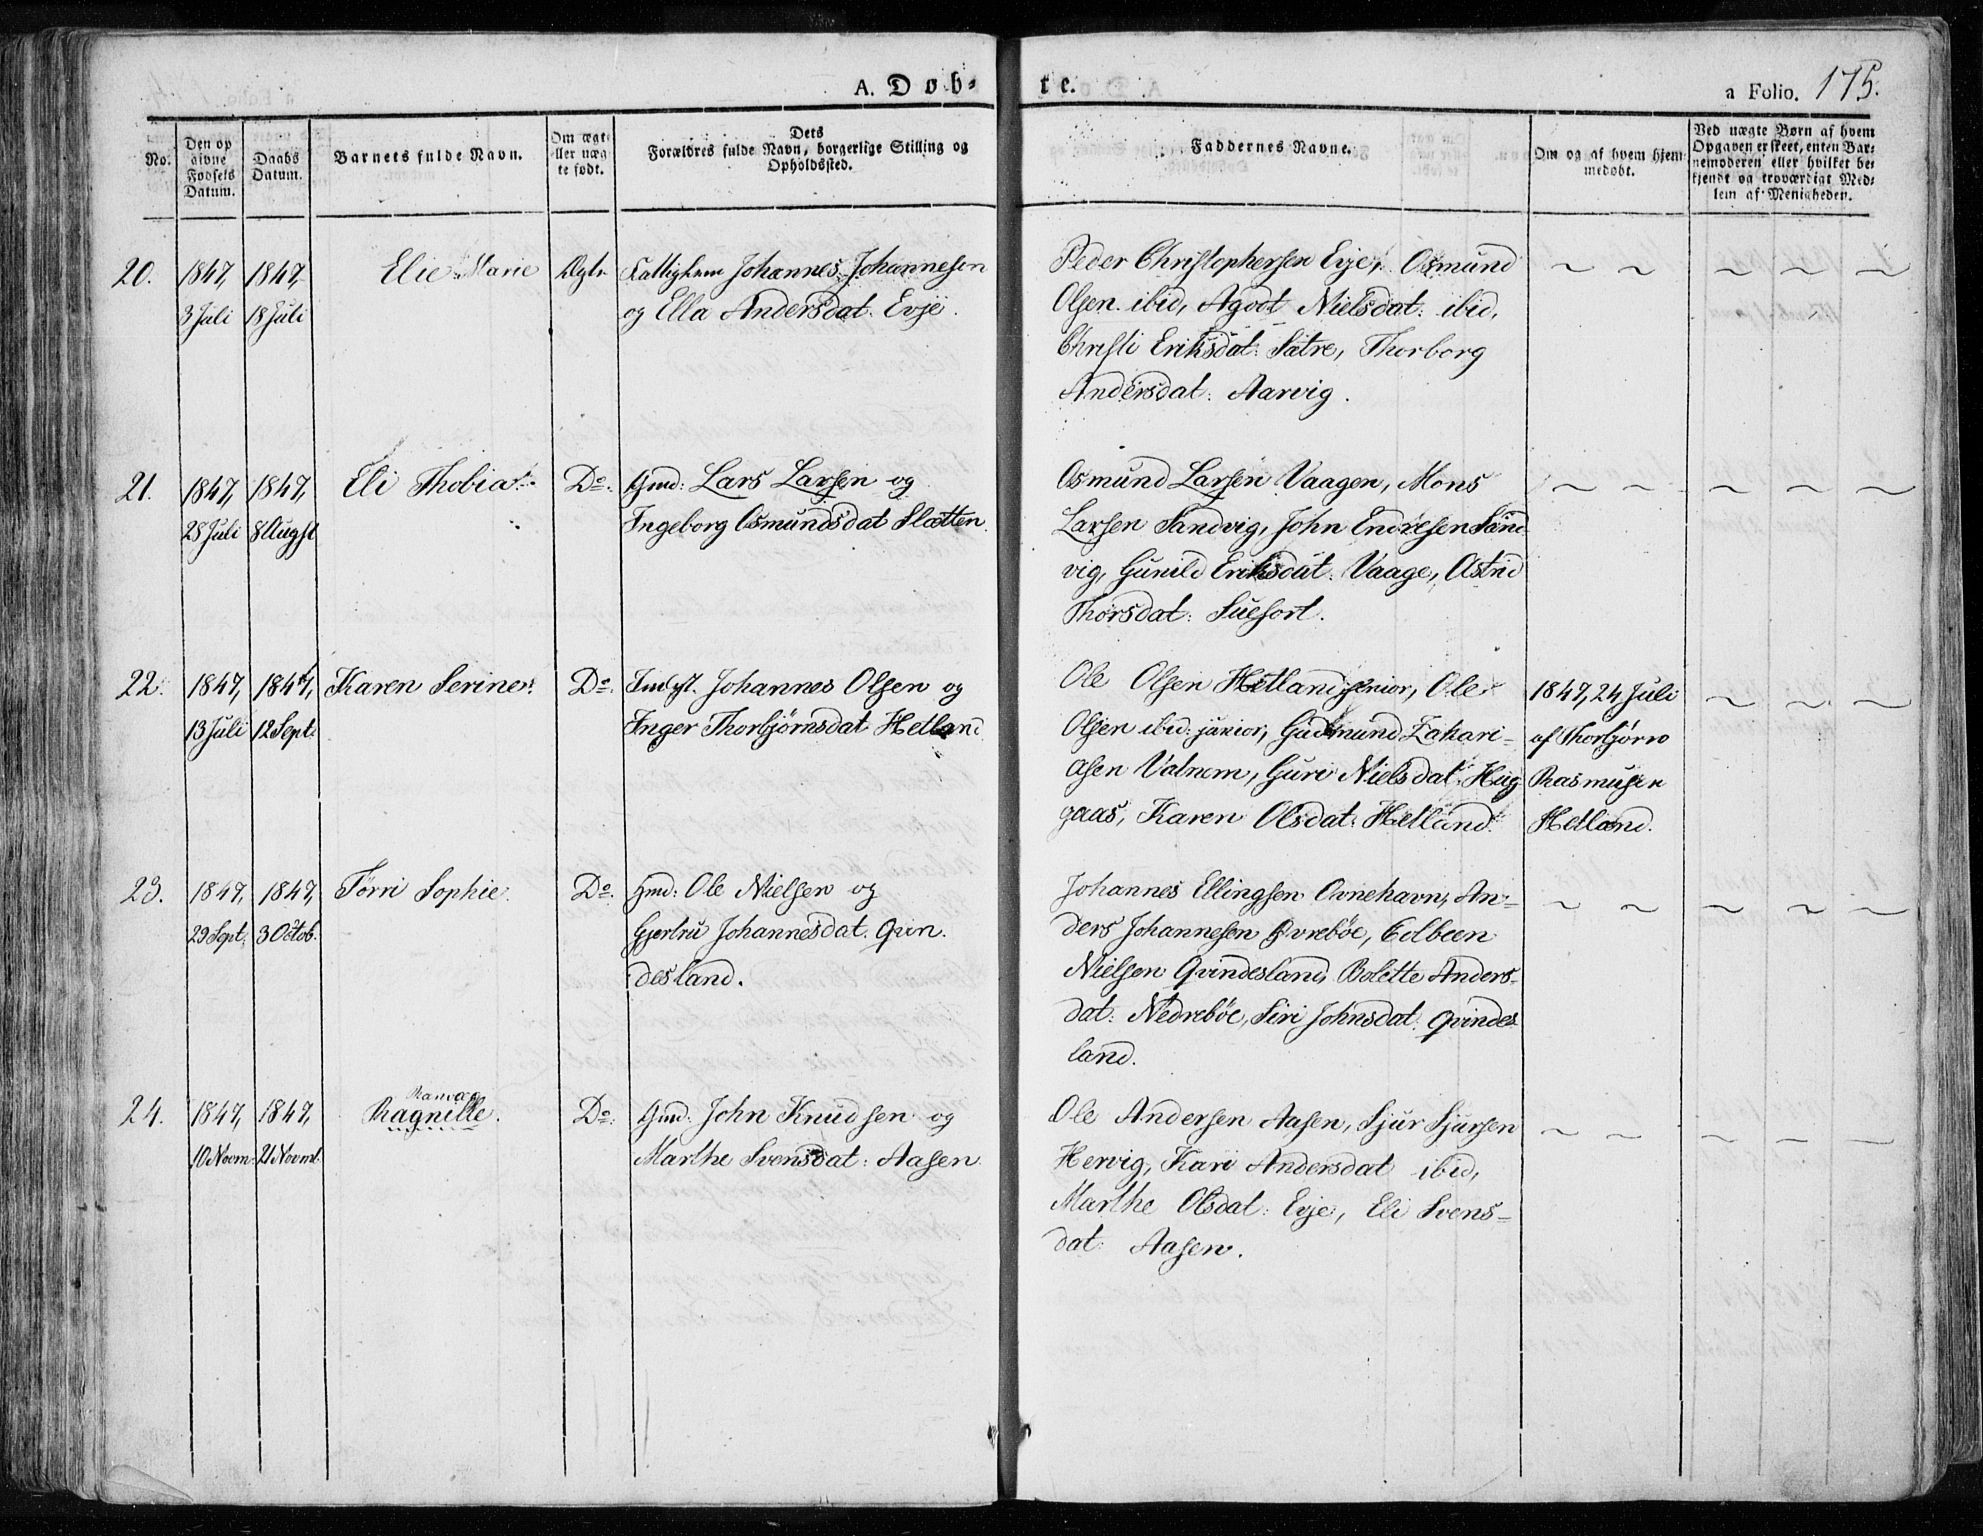 A. Døb-
te.
a Folio. 175.
No.
Den op
givne
Fødsels
Datum.
Daabs
Datum.
Barnets fulde Navn.
Om ægte
eller uæg
te født.
Dets
Forældres fulde Navn, borgerlige Stilling og
Opholdssted.
Faddernes Navne.
Om og af hvem hjem-
medøbt.
Ved uægte Børn af hvem
Opgaven er skeet, enten Bar-
nemoderen eller hvilket be-
kjendt og troværdigt Med-
lem af Menigheden.
20.
1847,
3 Juli
1847,
18 Juli
Elie Marie
Ægte
Fattiglem Johannes Johannesen
og Ella Andersdat. Evje.
Peder Christophersen Evje, Osmund
Olsen ibid, Agodt Nielsdat: ibid,
Christi Eriksdat: Sætre, Thorborg
Andersdat: Aarvig.
21.
1847,
28 Juli
1847,
8 Augst
Eli Thobia
Do.
Gmd: Lars Larsen og
Ingeborg Osmundsdat Slætten.
Osmund Larsen Vaagen, Mons
Larsen Sandvig, John Endresen Sand-
vig, Gunild Eriksdat: Vaage, Astrid
Thorsdat: Suefort.
22.
1847,
13 Juli
1847,
12 Sept:
Karen Serine
Do.
Indst. Johannes Olsen og
Inger Thorbjørnsdat Hetland
Ole Olsen Hetland senior, Ole
Olsen ibid: junior, Gudmund Zakari-
asen Valnom, Guri Nielsdat: Hug
gaas, Karen Olsdat: Hetland.
1847, 24 Juli
af Thorbjørn
Rasmusen
Hetland.
23.
1847,
29 Sept.
1847,
3 Octob.
Tørri Sophie.
Do.
Gmd: Ole Nielsen og
Gjertru Johannesdat. Qvin-
desland.
Johannes Ellingsen Ovnehavn, An-
ders Johannesen Øvrebøe, Colbeen
Nielsen Qvindesland, Bolette Anders-
dat: Nedrebøe, Siri Johnsdat: Qvindes
land.
24.
1847,
10 Novm:
1847,
21 Novmb.
Ranvæg
Ragnille.
Do.
Gmd: John Knudsen og
Marthe Svensdat: Aasen.
Ole Andersen Aasen, Sjur Sjursen
Hervig, Kari Andersdat ibid,
Marthe Olsdat: Evje, Eli Svens-
dat: Aasen.